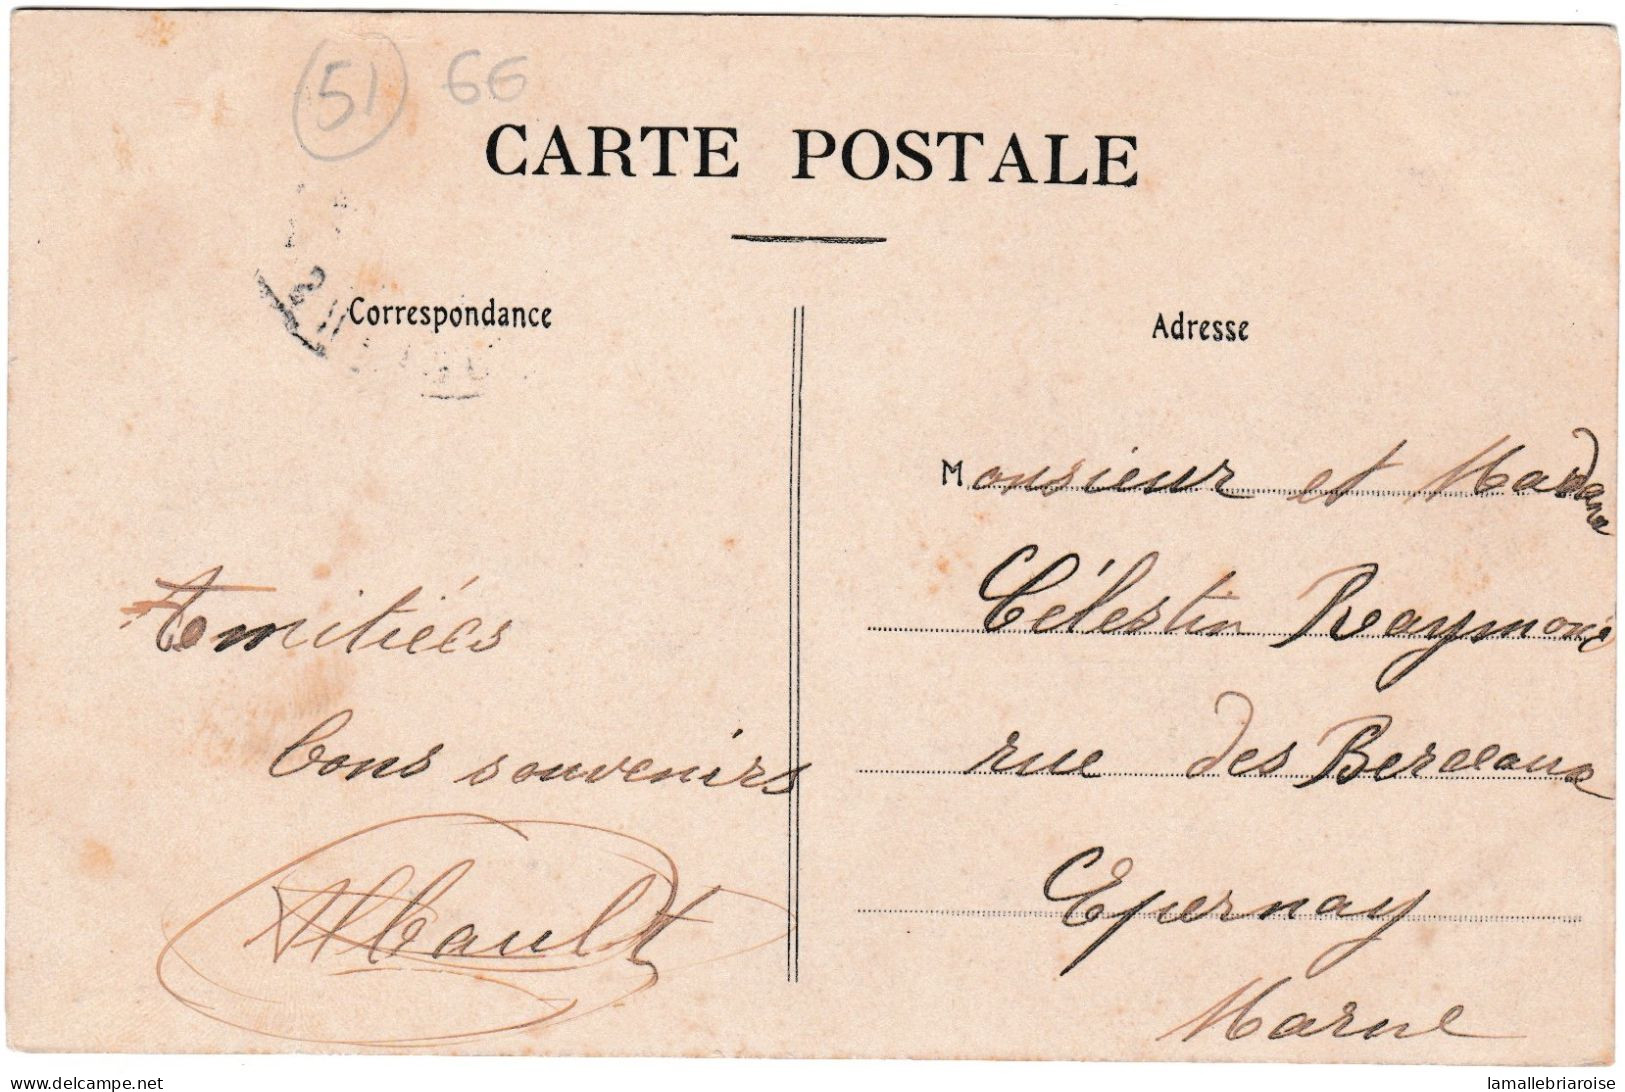 51 6E
CARTE POSTALE
Correspondance
Adresse
Amitiées
bons souvenirs
Monsieur et Madame
Célestin Raymond
rue des Berceaux
Epernay
Marne
delcampe.net
lamallebriaroise